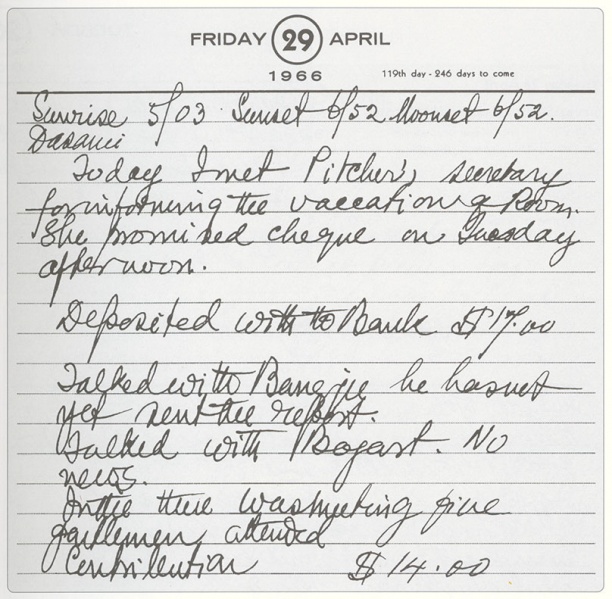 FRIDAY 29 APRIL
1966
119th day - 246 days to come
Sunrise 5/03 Sunset 6/52 Moonset 6/52.
Dasami
Today I met Pitcher's secretary
for informing the vaccation of Room.
She promised cheque on Tuesday
afternoon.
Deposited with the Bank $17.00
Talked with Banerjee he has not
yet sent the report.
Talked with Bogart. No
news.
In the there was meeting five
gentlemen attended
Contribution $14.00